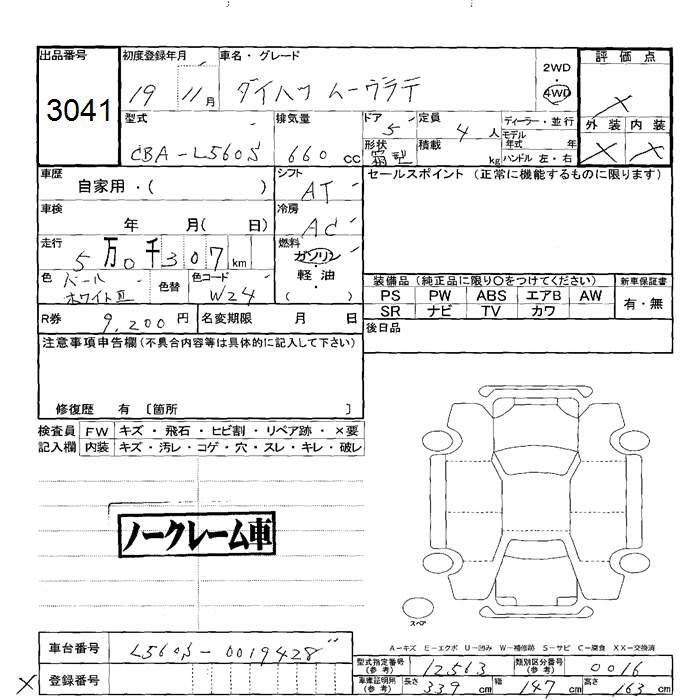 出品番号 初度登録年月 車名・グレード 2WD ・ 4WD 評価点
3041 19 11月 ダイハツ ムーヴラテ ×
型式 排気量 ドア 定員 ディーラー・並行 外装 内装
CBA-L560S 660cc 5 4人 モデル年式 年 × ×
形状 箱型 積載 kg ハンドル 左・右
車歴 自家用・( ) シフト AT セールスポイント (正常に機能するものに限ります)
車検 年 月( 日) 冷房 AC
走行 5万0千307km 燃料 ガソリン
色 パールホワイトⅢ 色替 色コード W24 軽油 ( )
装備品 (純正品に限り○をつけてください) 新車保証書
PS PW ABS エアB AW 有・無
SR ナビ TV カワ
R券 9,200円 名変期限 月 日 後日品
注意事項申告欄 (不具合内容等は具体的に記入して下さい)
修復歴 有 〔箇所 〕
検査員 FW キズ・飛石・ヒビ割・リペア跡・×要
記入欄 内装 キズ・汚レ・コゲ・穴・スレ・キレ・破レ
ノークレーム車
スペア
A-キズ E-エクボ U-凹み W-補修跡 S-サビ C-腐食 XX-交換済
車台番号 L560S-0019428
型式指定番号 (参考) 12563 類別区分番号 (参考) 0016
× 登録番号
車庫証明用 (参考) 長さ 339cm 幅 147cm 高さ 163cm